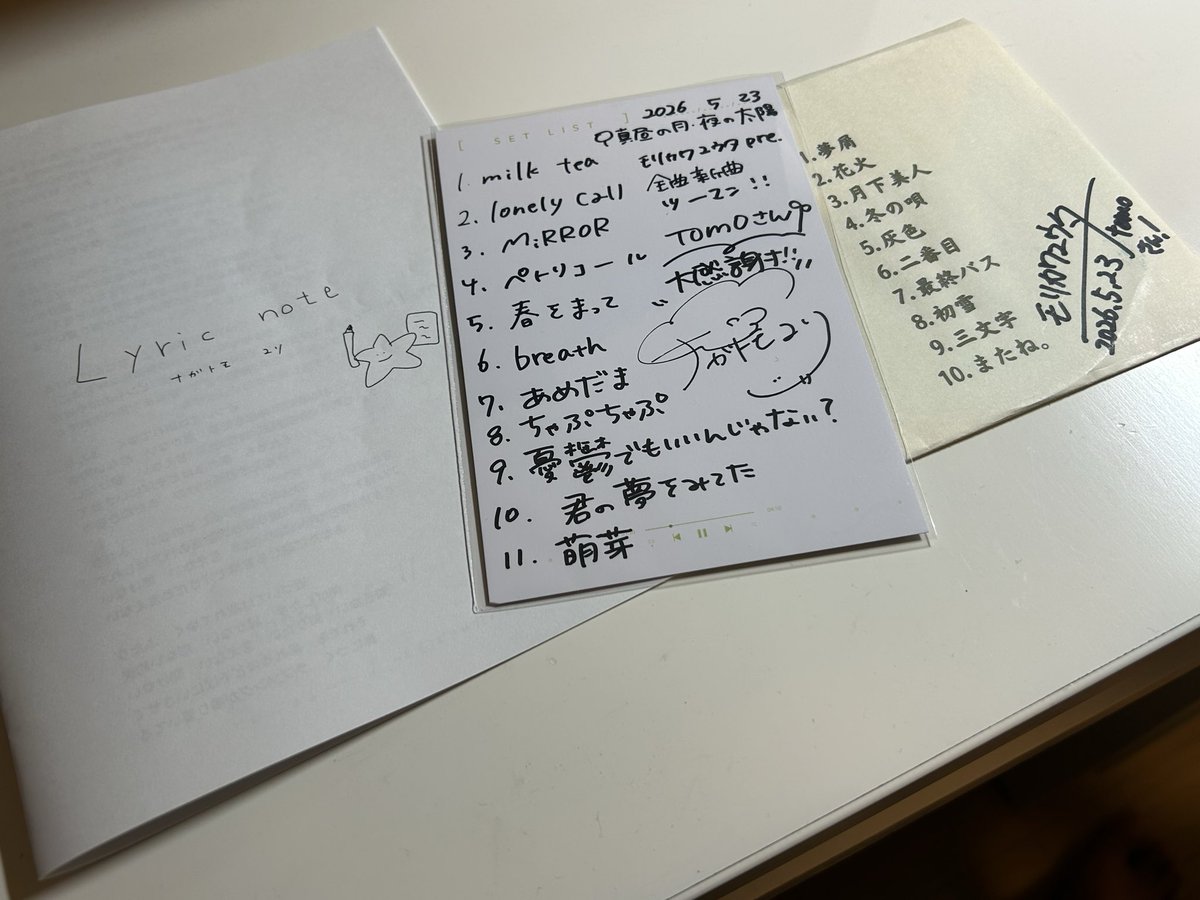 Lyric note
ナガトモ ユリ
[ SET LIST ]
2026 5 23
真昼の月・夜の太陽
モリカワユウタ pre.
全曲新曲
ツーマン!!
TOMOさん
大感謝!!
ナガトモユリ
1. milk tea
2. lonely call
3. MiRROR
4. ペトリコール
5. 春をまって
6. breath
7. あめだま
8. ちゃぷちゃぷ
9. 憂鬱でもいいんじゃない?
10. 君の夢をみてた
11. 萌芽
1.夢屑
2.花火
3.月下美人
4.冬の唄
5.灰色
6.二番目
7.最終バス
8.初雪
9.三文字
10.またね。
モリカワユウタ
2026.5.23
TOMO
さん!